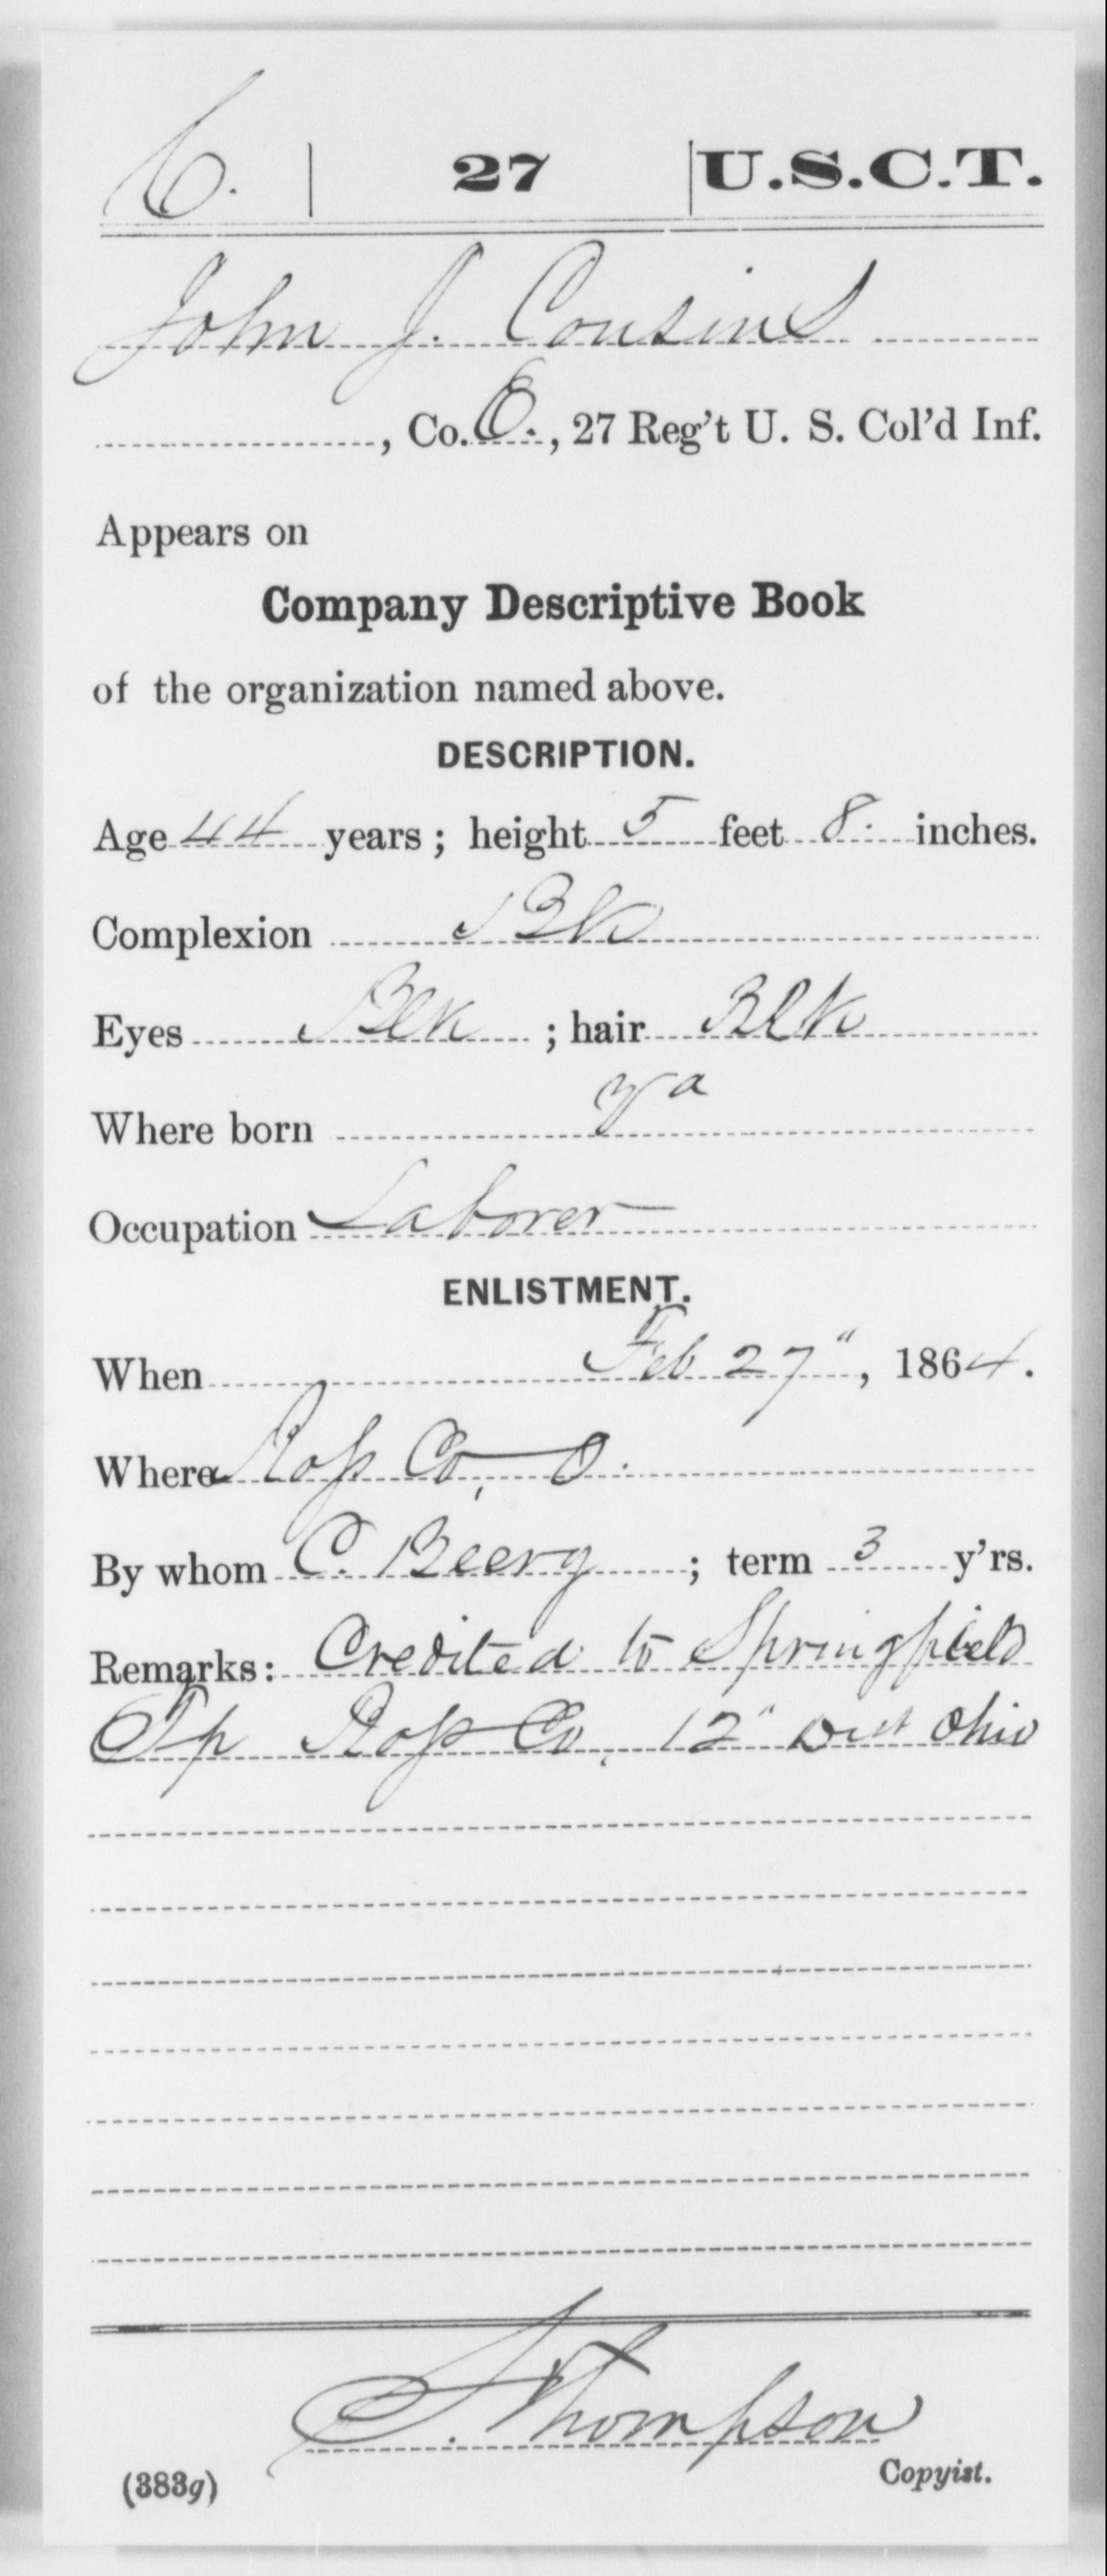 C. | 27 | U.S.C.T.
John J. Cousins
, Co. E., 27 Reg't U. S. Col'd Inf.
Appears on
Company Descriptive Book
of the organization named above.
DESCRIPTION.
Age 44 years; height 5 feet 8. inches.
Complexion Blk
Eyes Blk ; hair Blk
Where born Va
Occupation Laborer
ENLISTMENT.
When Feb 27", 1864.
Where Ross Co, O.
By whom C. Beery ; term 3 y'rs.
Remarks: Credited to Springfield
Tp Ross Co, 12" Dist Ohio
S. Thompson
(383g) Copyist.